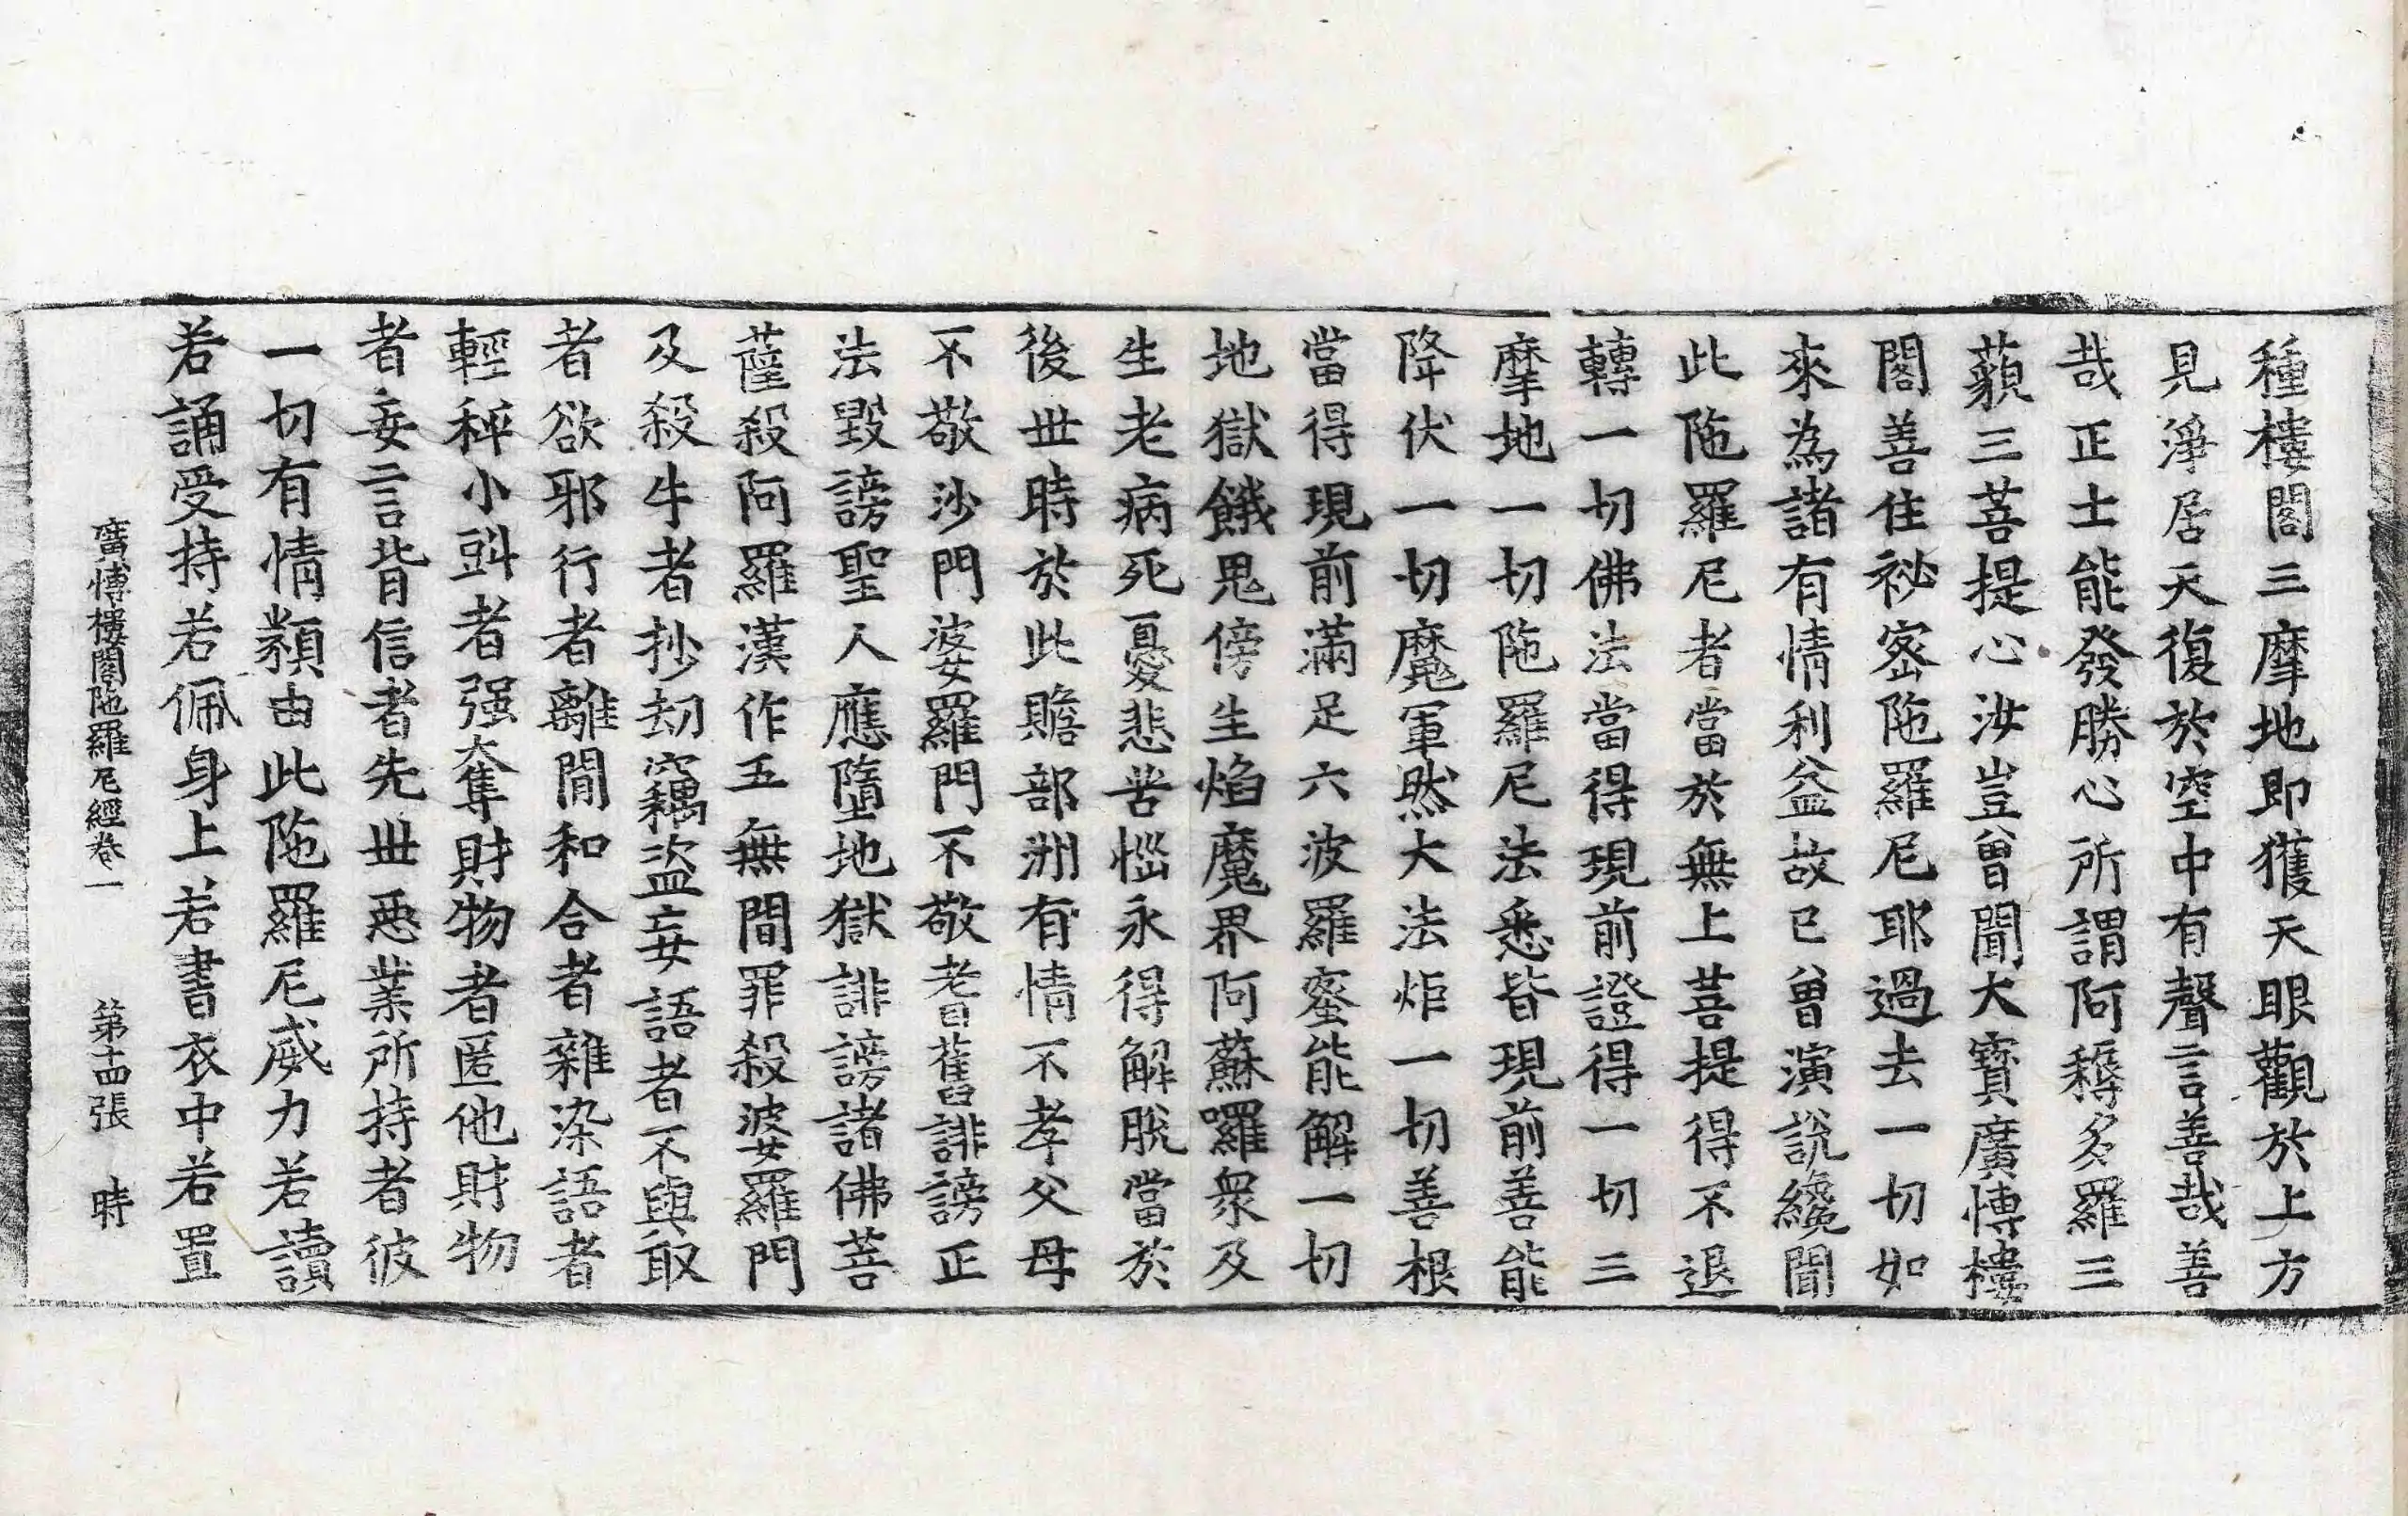 種樓閣三摩地即獲天眼觀於上方
見淨居天復於空中有聲言善哉善
哉正士能發勝心所謂阿耨多羅三
藐三菩提心汝豈曾聞大寶廣博樓
閣善住祕密陁羅尼耶過去一切如
來為諸有情利益故已曾演說纔聞
此陁羅尼者當於無上菩提得不退
轉一切佛法當得現前證得一切三
摩地一切陁羅尼法悉皆現前善能
降伏一切魔軍然大法炬一切善根
當得現前滿足六波羅蜜能解一切
地獄餓鬼傍生焰魔界阿蘇囉衆及
生老病死憂悲苦惱永得解脫當於
後世時於此贍部洲有情不孝父母
不敬沙門婆羅門不敬耆舊誹謗正
法毀謗聖人應墮地獄誹謗諸佛菩
薩殺阿羅漢作五無間罪殺婆羅門
及殺牛者抄劫竊盜妄語者不與取
者欲邪行者離間和合者雜染語者
輕秤小㪷者强奪財物者匿他財物
者妄言背信者先世惡業所持者彼
一切有情類由此陁羅尼威力若讀
若誦受持若佩身上若書衣中若置
廣博樓閣陁羅尼經卷一　第十四張　時